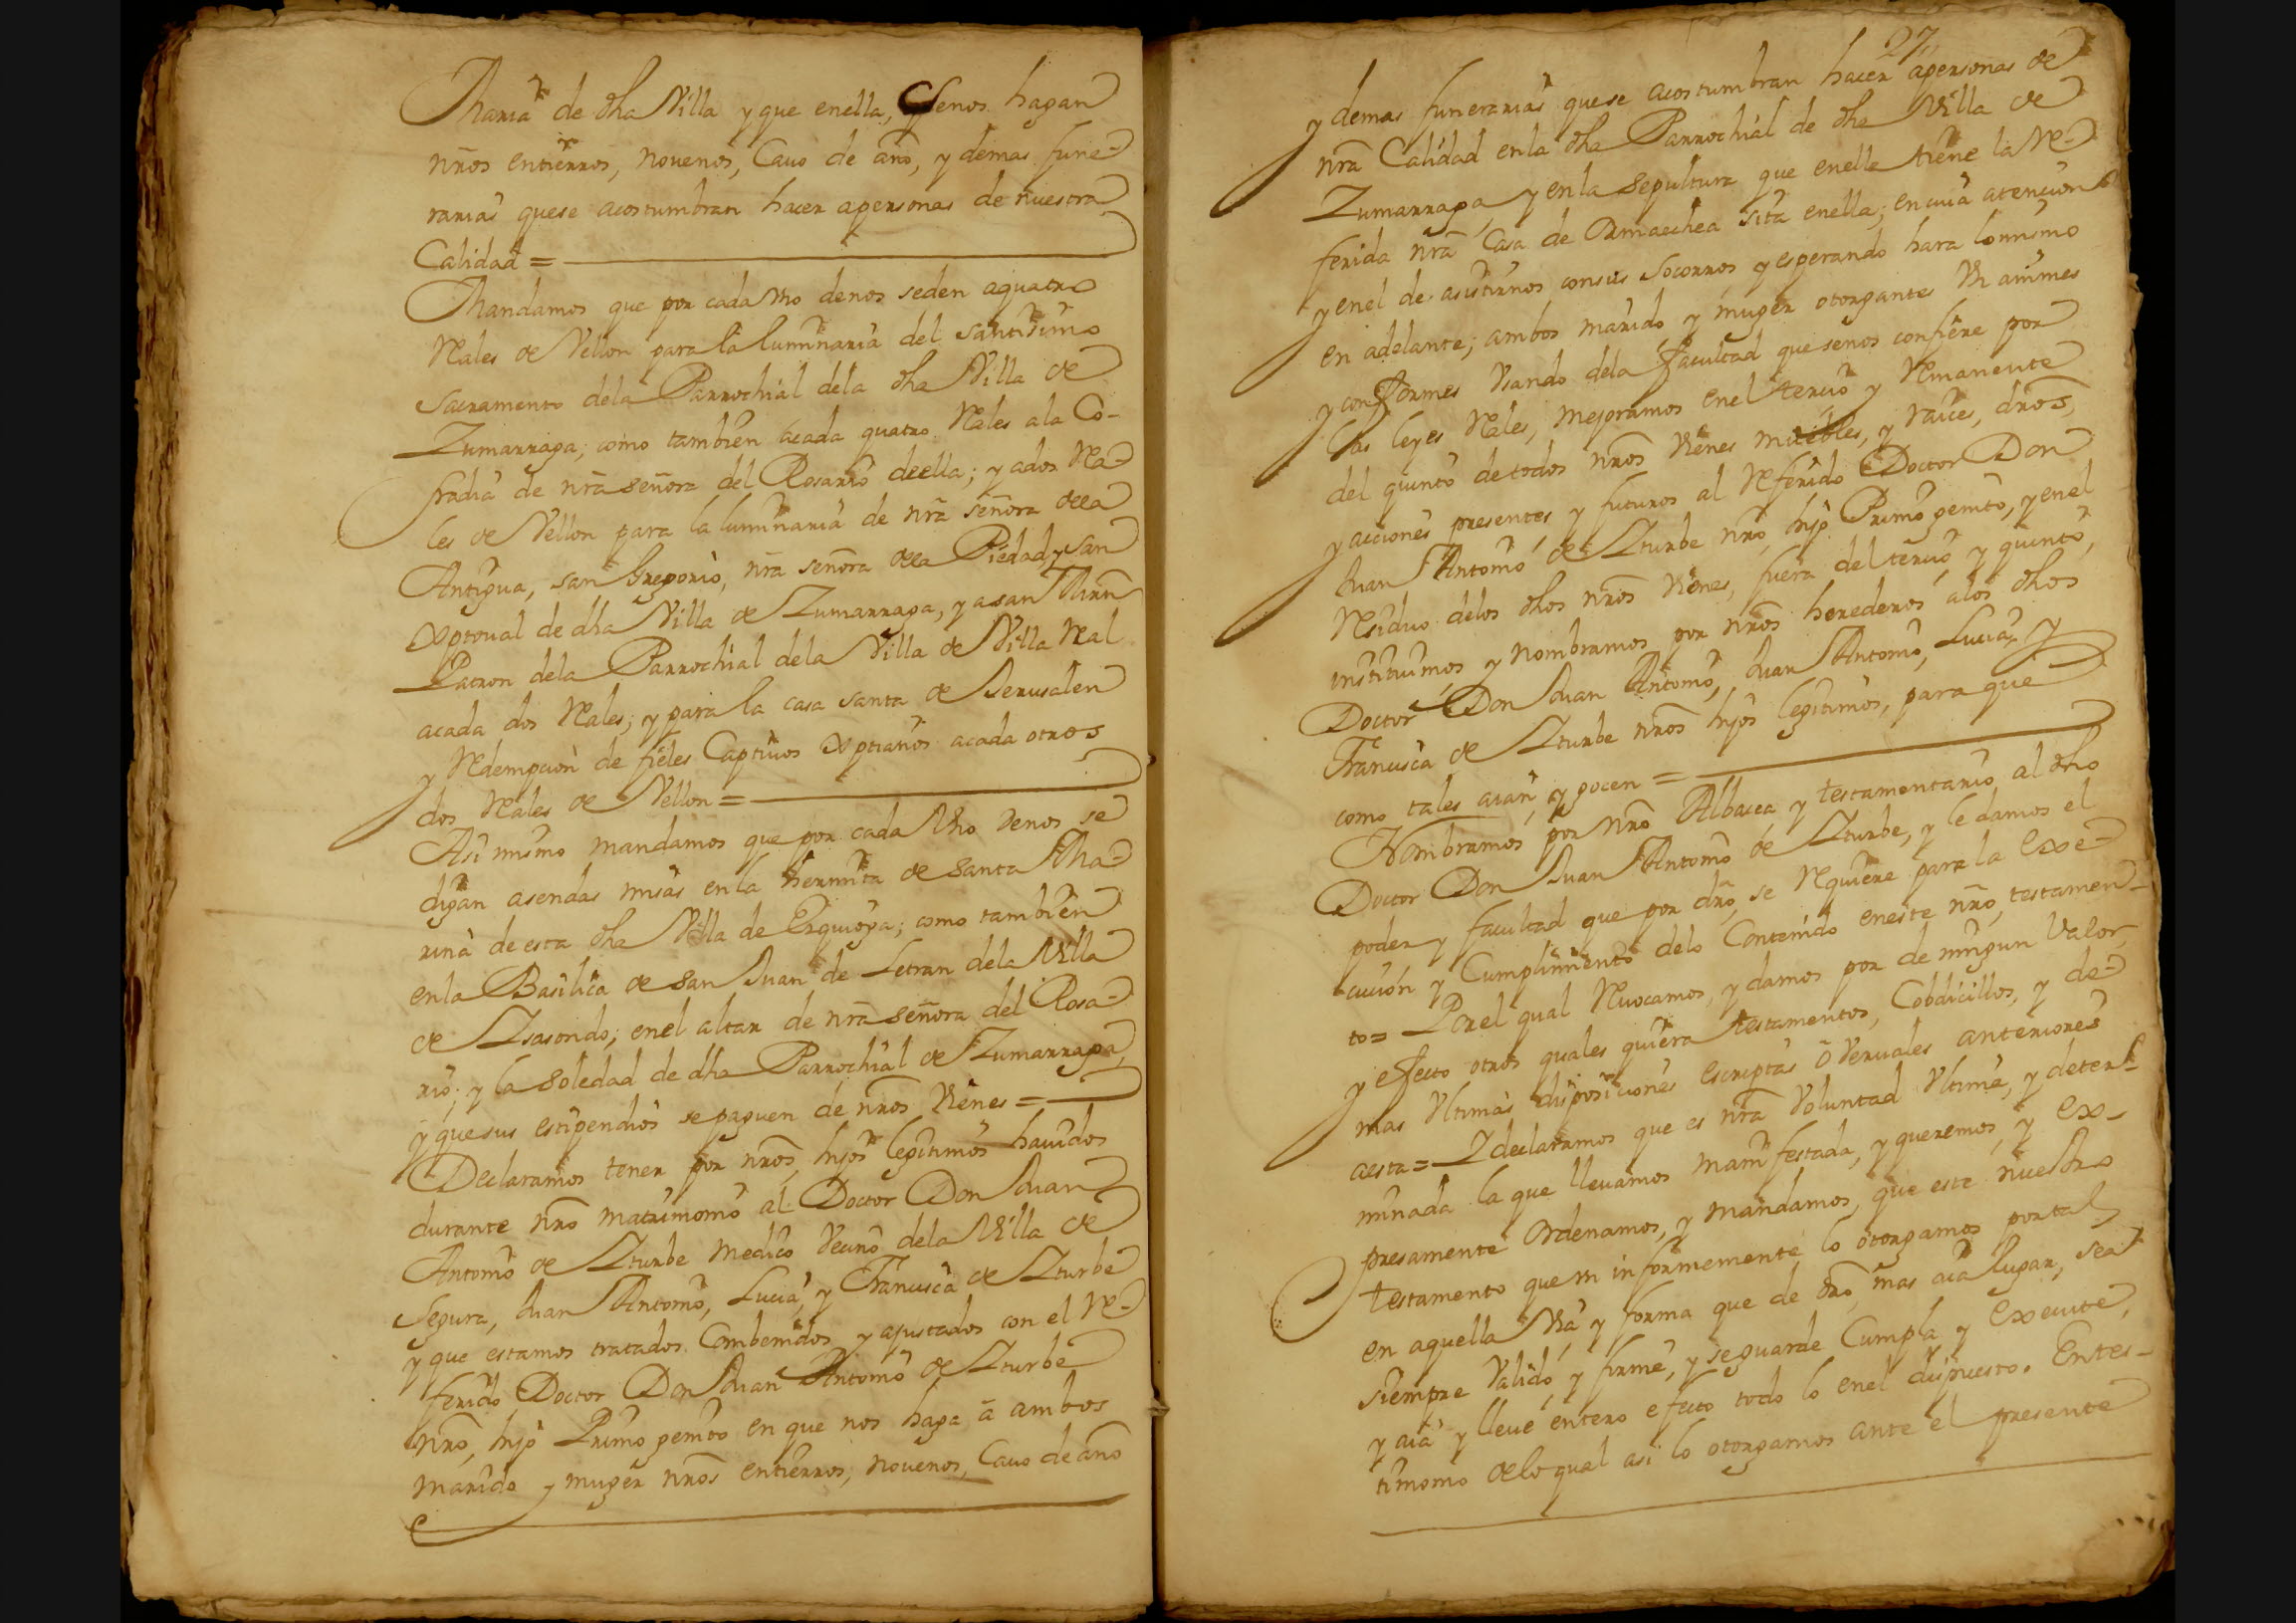 Maria de dha Villa y que enella, senos hagan
nros entierros, novenos, Cavo de año, y demas fune-
rarias quese acostumbran hacer apersonas de nuestra
Calidad =
Mandamos que por cada Vno denos seden aquatro
Reales de Vellon para la luminaria del santisimo
Sacramento dela Parrochial dela dha Villa de
Zumarraga; como tambien acada quatro Reales ala Co-
fradia de nra señora del Rosario deella; y ados Rea-
les de Vellon para la luminaria de nra señora dela
Antigua, san Gregorio, nra señora dela Piedad, y san
Xptoval de dha Villa de Zumarraga, y a san Martin
Patron dela Parrochial dela Villa de Villa Real
acada dos Reales; y para la casa santa de Jerusalen
y Redempcion de fieles Captivos Xptianos acada otros
dos Reales de Vellon =
Asi mismo mandamos que por cada Vno denos se
digan asendas misas en la hermita de Santa Ma-
rina de esta dha Villa de Ezquioga; como tambien
enla Basilica de San Juan de Letran dela Villa
de Isasondo; enel altar de nra señora del Rosa-
rio; y la Soledad de dha Parrochial de Zumarraga,
y quesus estipendios se paguen de nros Vienes =
Declaramos tener por nros, hijos legitimos havidos
durante nro matrimonio al Doctor Don Juan
Antonio de Iturbe medico Vecino dela Villa de
Segura, Juan Antonio, Lucia, y Francisca de Iturbe
y que estamos tratados Combenidos, y ajustados con el Re-
ferido Doctor Don Juan Antonio de Iturbe
nro, hijo Primo genito en que nos haga â ambos
marido y muger nros entierros, novenos, Cavo de año
27
y demas funerarias quese acostumbran hacer apersonas de
nra Calidad enla dha Parrochial de dha Villa de
Zumarraga, y en la sepultura que enella tiene la Re-
ferida nra Casa de Armaechea sita enella; en cuia atencion
y enel de asistirnos consus Socorros, y esperando hara lo mismo
en adelante; ambos marido, y muger otorgantes Vnanimes
y conformes Vsando dela facultad que senos confiere por
las leyes Reales, mejoramos enel tercio y Remanente
del quinto de todos nros Vienes muebles, y raices, dros,
y acciones presentes, y futuros al Referido Doctor Don
Juan Antonio de Iturbe nro, hijo Primo genito, y enel
Residuo delos dhos nros Vienes, fuera del tercio y quinto,
instituimos, y nombramos por nros herederos alos dhos
Doctor Don Juan Antonio, Juan Antonio, Lucia, y
Francisca de Iturbe nros hijos legitimos, para que
como tales aian, y gocen =
Nombramos por nro Albacea y testamentario al dho
Doctor Don Juan Antonio de Iturbe, y le damos el
poder y facultad que por dro, se Requiere para la Exe-
cucion y Cumplimiento delo Contenido eneste nro, testamen-
to = Por el qual Revocamos, y damos por de ningun Valor,
y efecto otros quales quiera testamentos, Cobdicillos, y de-
mas Vltimas disposiciones escriptas ô Veruales anteriores
aesta = I declaramos que es nra Voluntad Vltima, y deter-
minada la que llevamos manifestada, y queremos, y ex-
presamente Ordenamos, y mandamos, que este nuestro
testamento que vniformemente lo otorgamos por tal,
en aquella Via y forma que de dro, mas aia lugar, sea
siempre Valido, y firme, y seguarde Cumpla y Execute,
y aia y lleve entero efecto todo lo enel dispuesto. Entes-
timonio delo qual asi lo otorgamos ante el presente